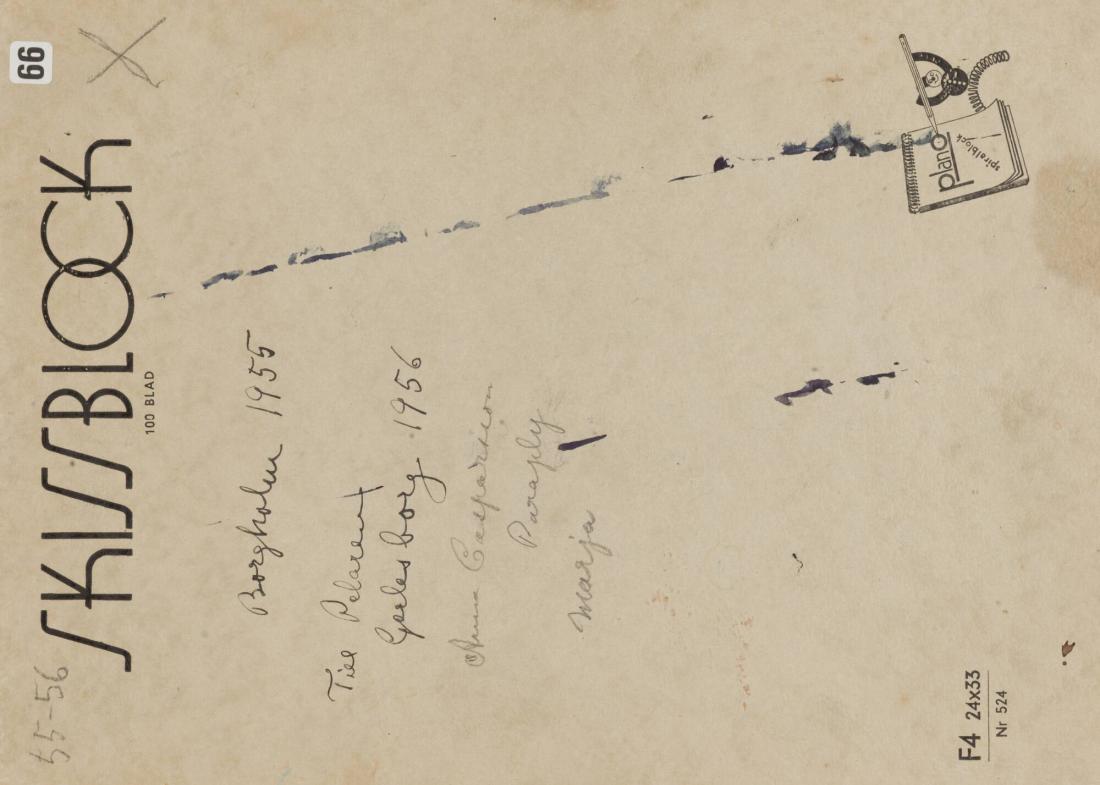 55-56
66
SKISSBLOCK
100 BLAD
Borgholm 1955
Till Pelaren
Gerlesborg 1956
Anna Casparsson
Paraply
Marja
plano
spiralblock
F4 24x33
Nr 524